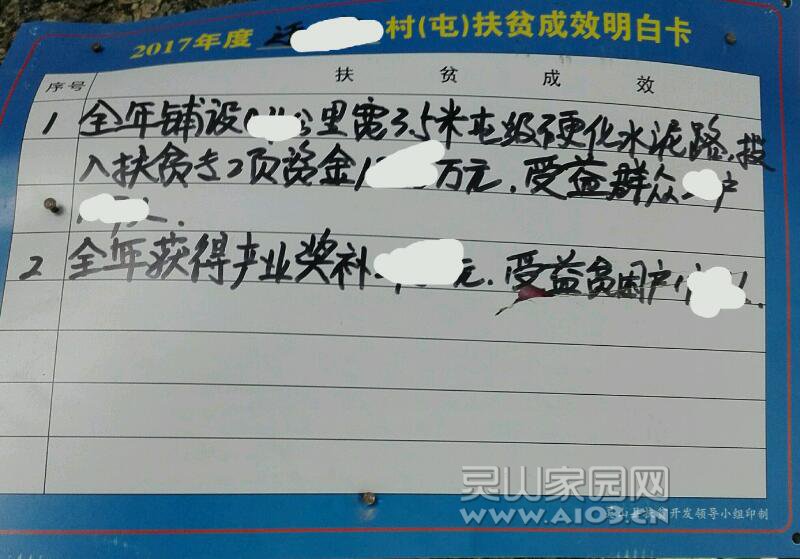 2017年度 村(屯)扶贫成效明白卡
序号 扶贫成效
1 全年铺设 公里宽3.5米屯级硬化水泥路,投
入扶贫专项资金1 万元.受益群众 户
人.
2 全年获得产业奖补 元.受益贫困户
灵山家园网
WWW.AIOS.CN
灵山县扶贫开发领导小组印制